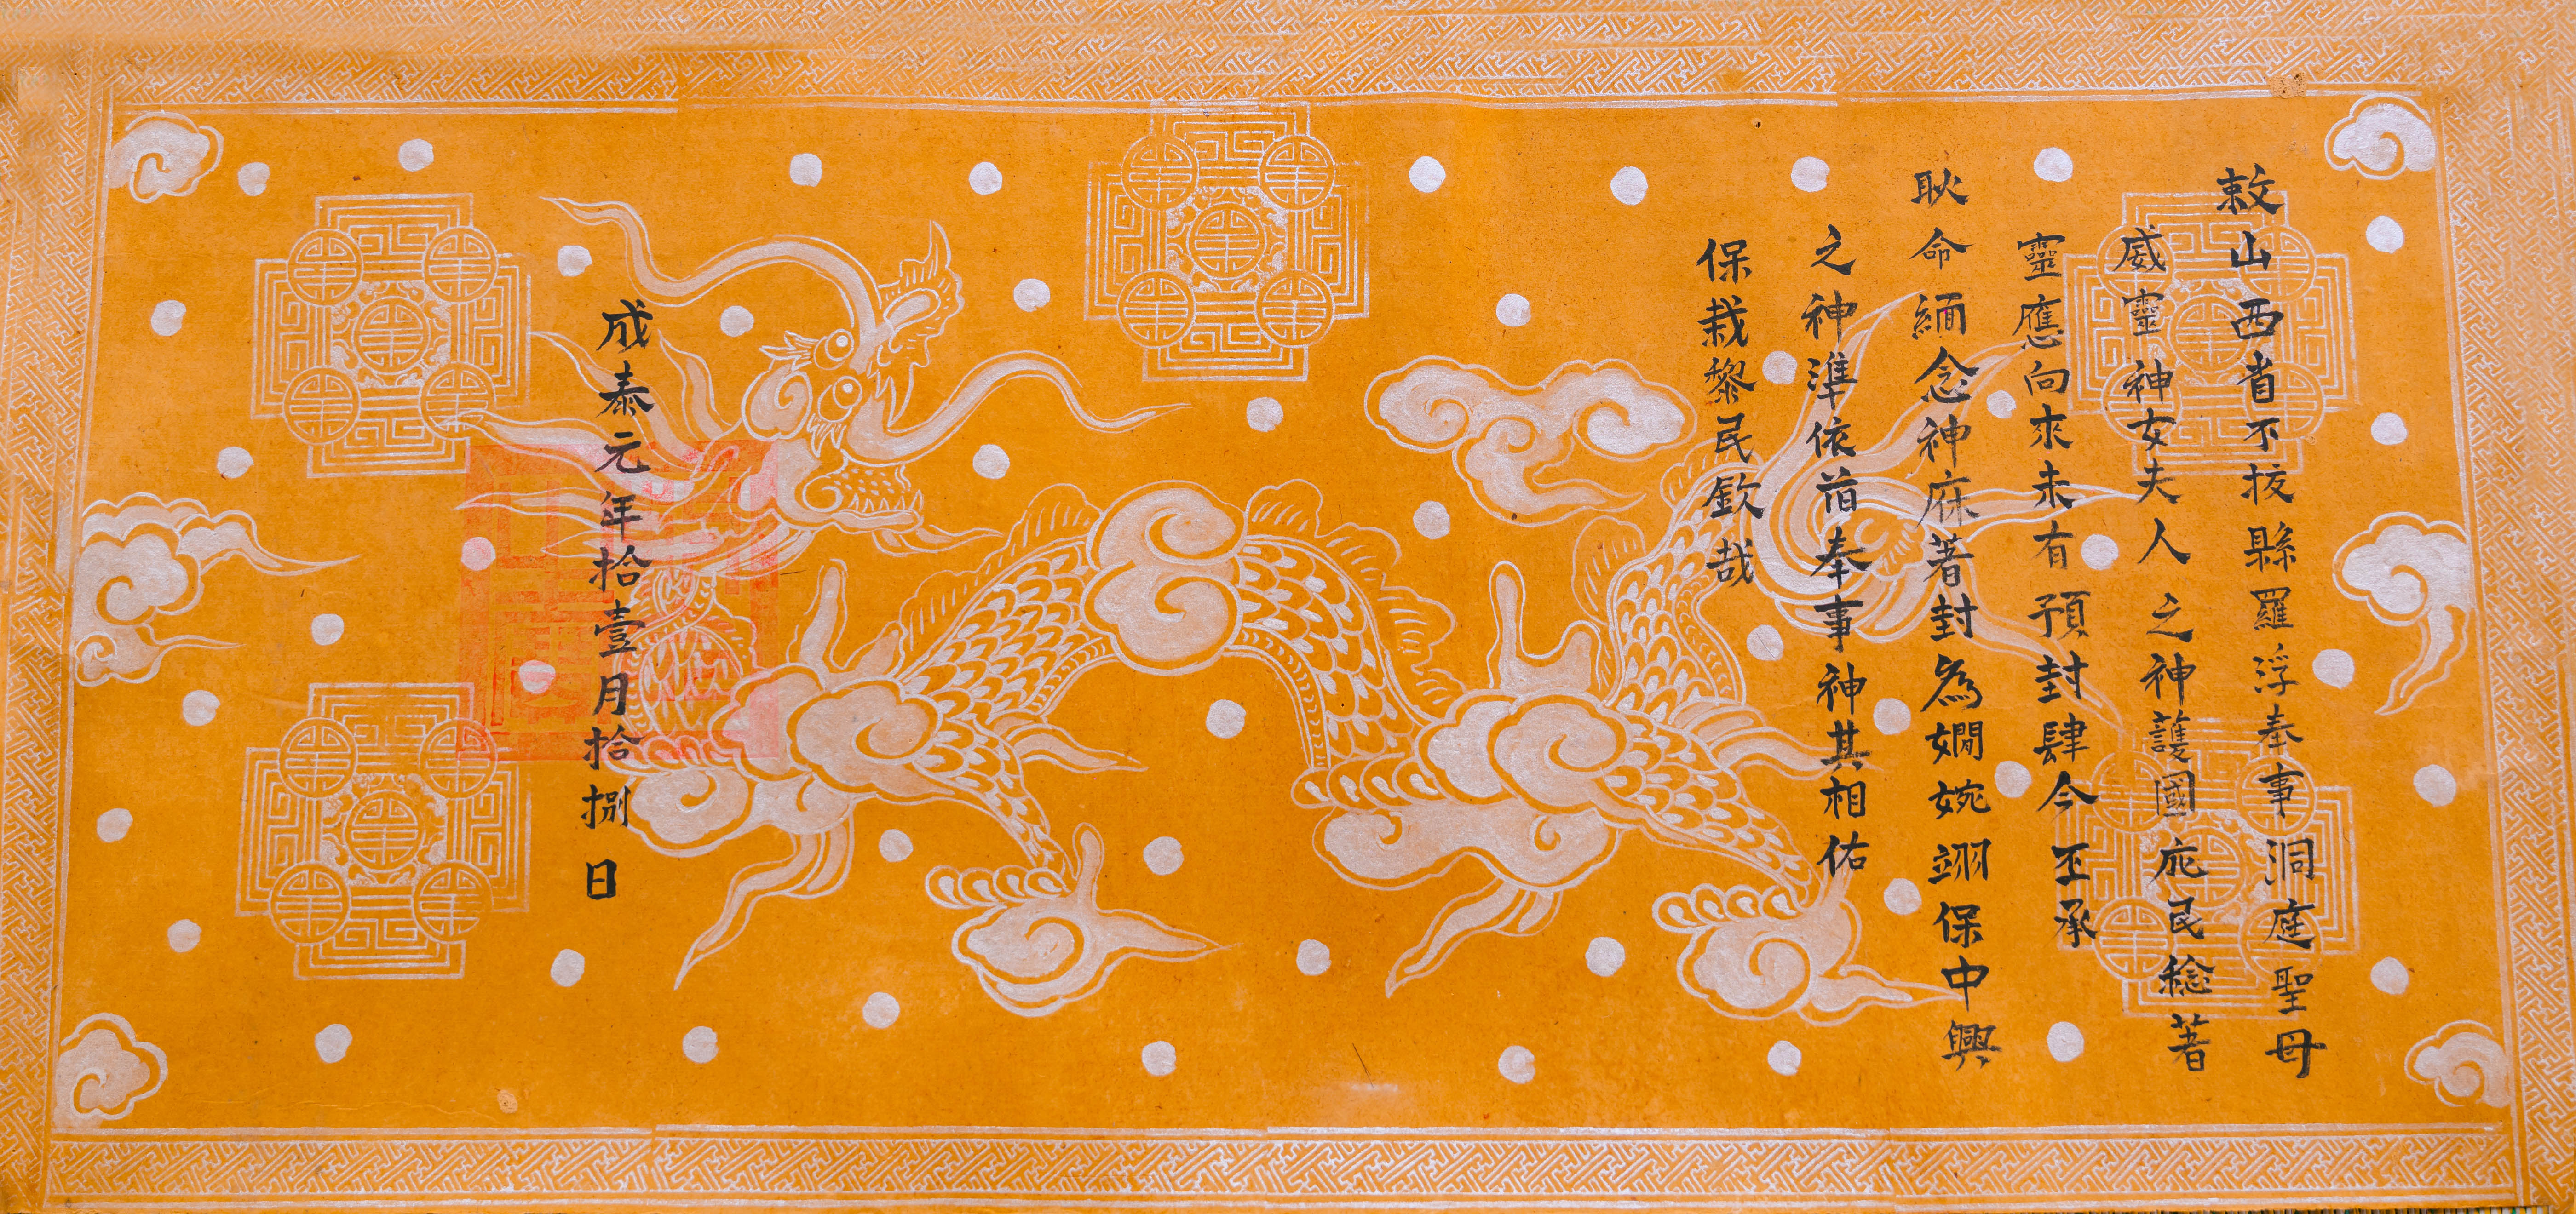 敕山西省不拔縣羅浮奉事洞庭聖母
威靈神女夫人之神護國庇民稔著
靈應向來未有預封肆今丕承
耿命緬念神庥著封為嫻婉翊保中興
之神準依舊奉事神其相佑
保我黎民欽哉
成泰元年拾壹月拾捌日